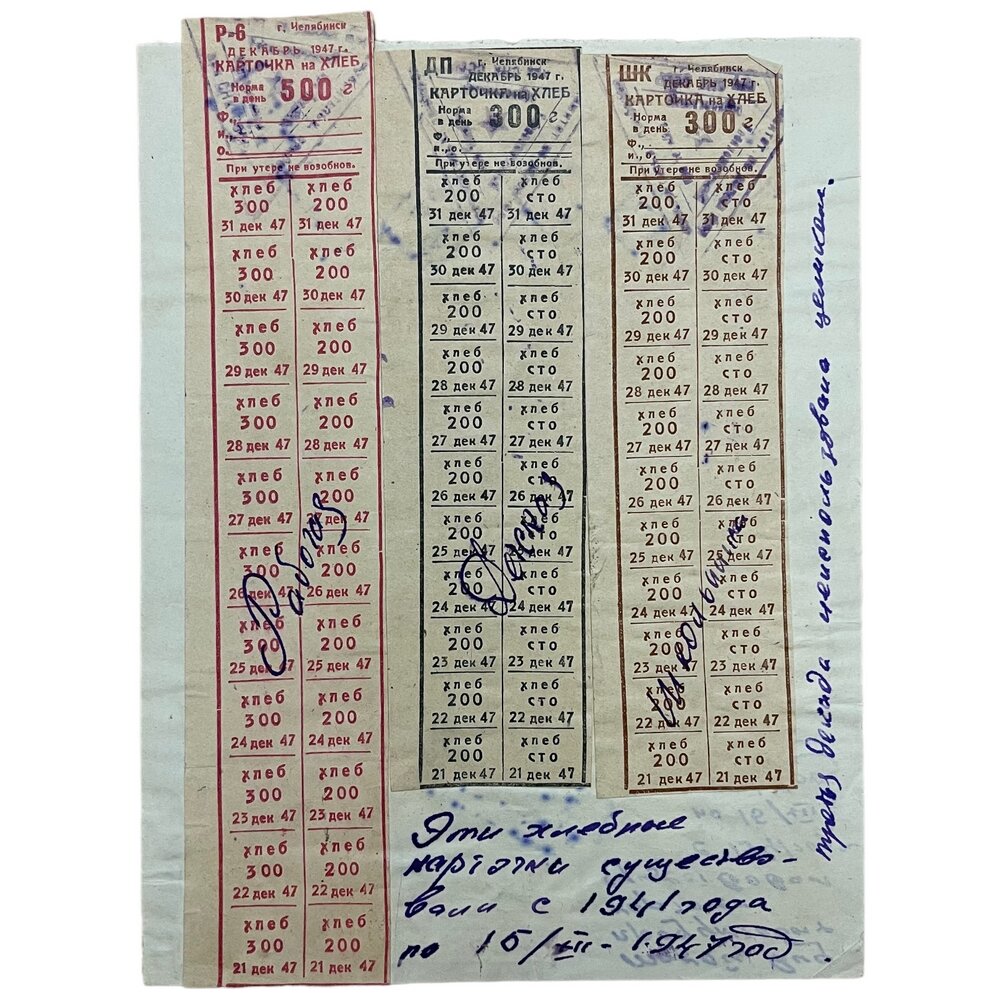 Р-6 г. Челябинск
ДЕКАБРЬ 1947 г.
КАРТОЧКА на ХЛЕБ
Норма в день 500 г
Ф.,
и.,
о.
При утере не возобнов.
хлеб хлеб
300 200
31 дек 47 31 дек 47
хлеб хлеб
300 200
30 дек 47 30 дек 47
хлеб хлеб
300 200
29 дек 47 29 дек 47
хлеб хлеб
300 200
28 дек 47 28 дек 47
хлеб хлеб
300 200
27 дек 47 27 дек 47
хлеб хлеб
300 200
26 дек 47 26 дек 47
хлеб хлеб
300 200
25 дек 47 25 дек 47
хлеб хлеб
300 200
24 дек 47 24 дек 47
хлеб хлеб
300 200
23 дек 47 23 дек 47
хлеб хлеб
300 200
22 дек 47 22 дек 47
хлеб хлеб
300 200
21 дек 47 21 дек 47
Рабочая
ДП г. Челябинск
ДЕКАБРЬ 1947 г.
КАРТОЧКА на ХЛЕБ
Норма в день 300 г
Ф.,
и., о.
При утере не возобнов.
хлеб хлеб
200 сто
31 дек 47 31 дек 47
хлеб хлеб
200 сто
30 дек 47 30 дек 47
хлеб хлеб
200 сто
29 дек 47 29 дек 47
хлеб хлеб
200 сто
28 дек 47 28 дек 47
хлеб хлеб
200 сто
27 дек 47 27 дек 47
хлеб хлеб
200 сто
26 дек 47 26 дек 47
хлеб хлеб
200 сто
25 дек 47 25 дек 47
хлеб хлеб
200 сто
24 дек 47 24 дек 47
хлеб хлеб
200 сто
23 дек 47 23 дек 47
хлеб хлеб
200 сто
22 дек 47 22 дек 47
хлеб хлеб
200 сто
21 дек 47 21 дек 47
ШК г. Челябинск
ДЕКАБРЬ 1947 г.
КАРТОЧКА на ХЛЕБ
Норма в день 300 г
Ф.,
и., о.
При утере не возобнов.
хлеб хлеб
200 сто
31 дек 47 31 дек 47
хлеб хлеб
200 сто
30 дек 47 30 дек 47
хлеб хлеб
200 сто
29 дек 47 29 дек 47
хлеб хлеб
200 сто
28 дек 47 28 дек 47
хлеб хлеб
200 сто
27 дек 47 27 дек 47
хлеб хлеб
200 сто
26 дек 47 26 дек 47
хлеб хлеб
200 сто
25 дек 47 25 дек 47
хлеб хлеб
200 сто
24 дек 47 24 дек 47
хлеб хлеб
200 сто
23 дек 47 23 дек 47
хлеб хлеб
200 сто
22 дек 47 22 дек 47
хлеб хлеб
200 сто
21 дек 47 21 дек 47
третья декада неиспользована целиком.
Эти хлебные
карточки существо-
вали с 1941 года
по 15/III-1947 год.